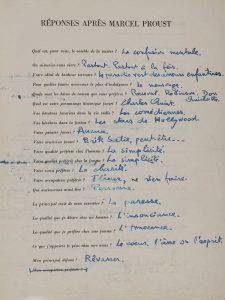 RÉPONSES APRÈS MARCEL PROUST
Quel est, pour vous, le comble de la misère ? La confusion mentale.
Où aimeriez-vous vivre ? Partout. Partout à la fois.
Votre idéal de bonheur terrestre ? Le paradis vert des amours enfantines.
Pour quelles fautes avez-vous le plus d'indulgence ? Le mensonge.
Quels sont les héros de roman que vous préférez ? Robinson, Don Quichotte.
Quel est votre personnage historique favori ? Charles Quint.
Vos héroïnes favorites dans la vie réelle ? Les comédiennes.
Vos héroïnes dans la fiction ? Les stars de Hollywood.
Votre peintre favori ? Aucun.
Votre musicien favori ? Erik Satie, peut-être...
Votre qualité préférée chez l'homme ? La simplicité.
Votre qualité préférée chez la femme ? La simplicité.
Votre vertu préférée ? La charité.
Votre occupation préférée ? Flâner, ne rien faire.
Qui auriez-vous aimé être ? Personne.
Le principal trait de mon caractère ? La paresse.
La qualité que je désire chez un homme ? L'insouciance.
La qualité que je préfère chez une femme ? L'innocence.
Ce que j'apprécie le plus chez mes amis ? Le coeur, l'âme ou l'esprit.
Mon principal défaut ? Rêvasser.
Mon occupation préférée ?